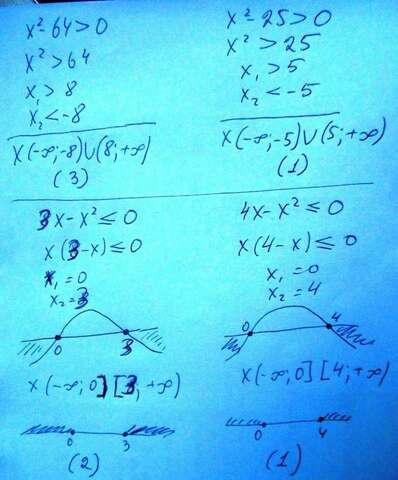 x²-64>0
x²>64
x₁>8
x₂<-8
x(-∞;-8)∪(8;+∞)
(3)
x²-25>0
x²>25
x₁>5
x₂<-5
x(-∞;-5)∪(5;+∞)
(1)
3x-x²≤0
x(3-x)≤0
x₁=0
x₂=3
0 3
x(-∞;0][3;+∞)
0 3
(2)
4x-x²≤0
x(4-x)≤0
x₁=0
x₂=4
0 4
x(-∞;0][4;+∞)
0 4
(1)